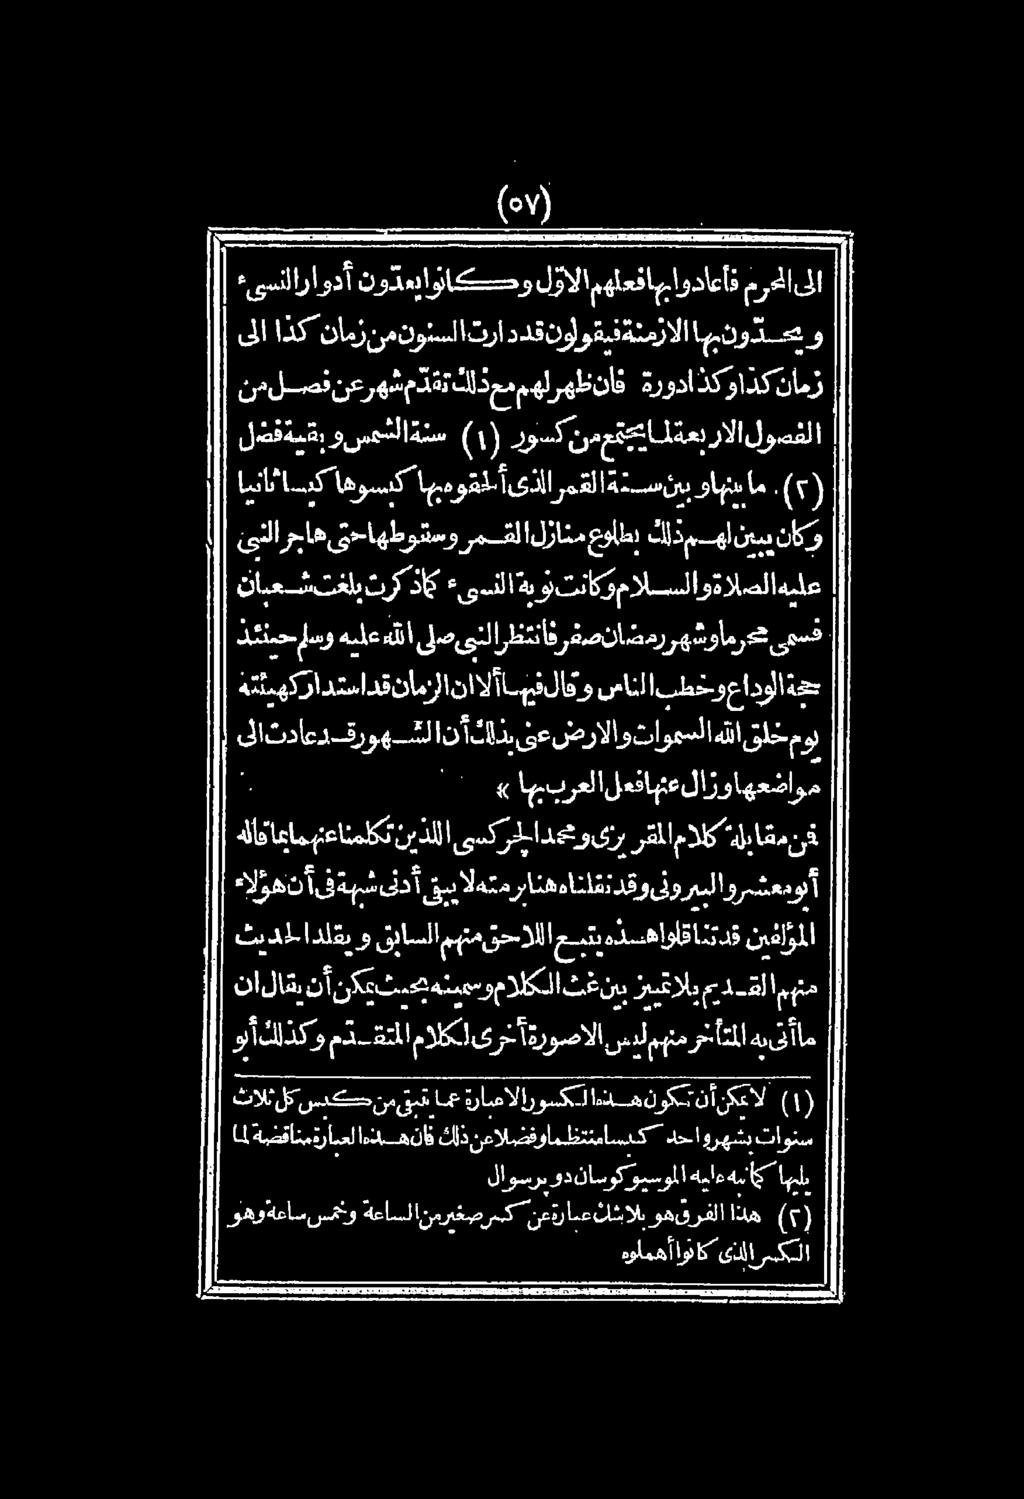 (٥٧)
الى المحرم فأعادوا بها فعلهم الاوّل وكانوا يعدّون أدوار النسىء
ويحدّون بها الازمنة فيقولون قد دارت السنون من زمان كذا الى
زمان كذا وكذا دورة فان ظهر لهم مع ذلك تقدّم شهر عن فصل من
الفصول الاربعة لما يجتمع من كسور (١) سنة الشمس وبقية فضل
(٢) ما بينها وبين سنة القمر الذى ألحقوه بها كبسوها كبسا ثانيا
وكان يبين لهم ذلك بطلوع منازل القمر وسقوطها حتى هاجر النبى
عليه الصلاة والسلام وكانت نوبة النسىء كما ذكرت بلغت شعبان
فسمى محرما وشهر رمضان صفر فانتظر النبى صلى الله عليه وسلم حينئذ
حجة الوداع وخطب الناس وقال فيها ألا ان الزمان قد استدار كهيئته
يوم خلق الله السموات والارض عنى بذلك أن الشهور قد عادت الى
مواضعها وزال عنها فعل العرب بها »
فن مقابلة كلام المقريزى ومحمد الجركسى اللذين تكلمنا عنهما بما قاله
أبو معشر والبيرونى وقد نقلناه هنا برمته لا يبقى أدنى شبهة فى أن هؤلاء
المؤلفين قد تناقلوا هذه يتبع اللاحق منهم السابق ويقلد الحديث
منهم القديم بلا تمييز بين غث الكلام وسمينه بحيث يمكن أن يقال ان
ما أتى به المتأخر منهم ليس الا صورة أخرى لكلام المتقدّم وكذلك أبو
(١) لا يمكن أن تكون هذه الكسور الا عبارة عما تبقى من كبس كل ثلاث
سنوات بشهر واحد كبسا منتظما وفضلا عن ذلك فان هذه العبارة مناقضة لما
يليها كما نبه عليه الموسيو كوسان دو پرسوال
(٢) هذا الفرق هو بلا شك عبارة عن كسر صغير من الساعة وخمس ساعة وهو
الكسر الذى كانوا أهملوه